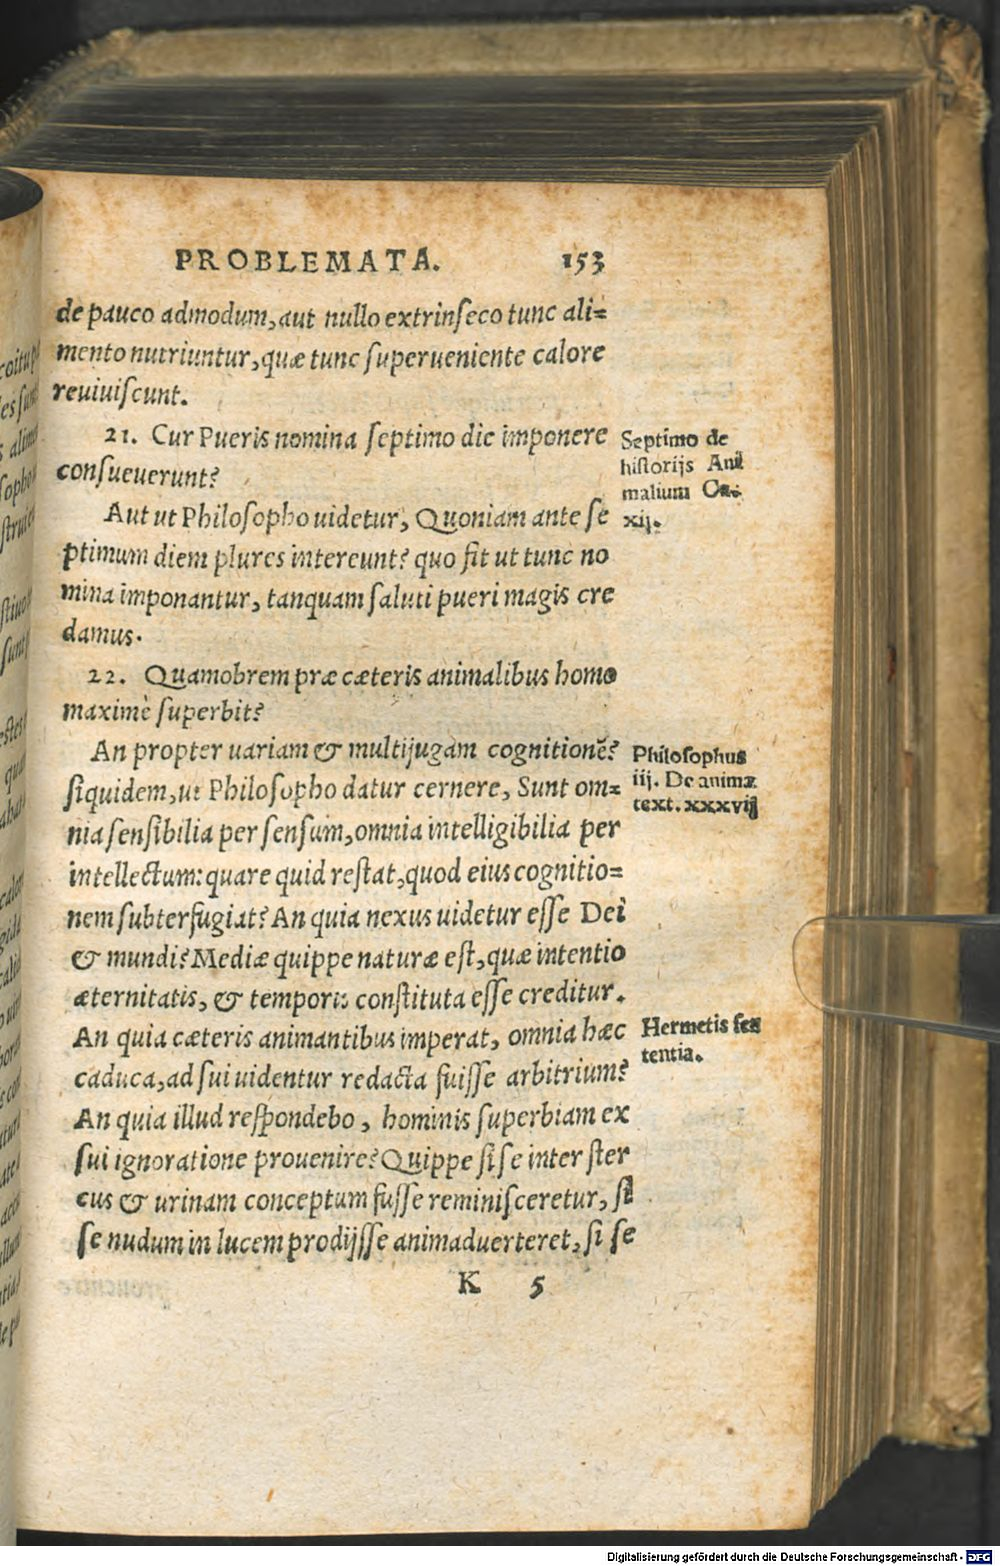 PROBLEMATA. 153
de pauco admodum, aut nullo extrinseco tunc ali=
mento nutriuntur, quæ tunc superueniente calore
reuiuiscunt.
21. Cur Pueris nomina septimo die imponere
consueuerunt?
Aut ut Philosopho uidetur, Quoniam ante se
ptimum diem plures intereunt? quo fit ut tunc no
mina imponantur, tanquam saluti pueri magis cre
damus.
Septimo de
historijs Ani
malium Ca.
xij.
22. Quamobrem præ cæteris animalibus homo
maximè superbit?
An propter uariam & multijugam cognitionẽ?
siquidem, ut Philosopho datur cernere, Sunt om=
nia sensibilia per sensum, omnia intelligibilia per
intellectum: quare quid restat, quod eius cognitio=
nem subterfugiat? An quia nexus uidetur esse Dei
& mundi? Mediæ quippe naturæ est, quæ intentio
æternitatis, & temporis constituta esse creditur.
An quia cæteris animantibus imperat, omnia hæc
caduca, ad sui uidentur redacta fuisse arbitrium?
An quia illud respondebo, hominis superbiam ex
sui ignoratione prouenire? Quippe si se inter ster
cus & urinam conceptum fuisse reminisceretur, si
se nudum in lucem prodijsse animaduerteret, si se
Philosophus
iij. De anima
text. xxxvij
Hermetis sen
tentia.
K 5
Digitalisierung gefördert durch die Deutsche Forschungsgemeinschaft - DFG